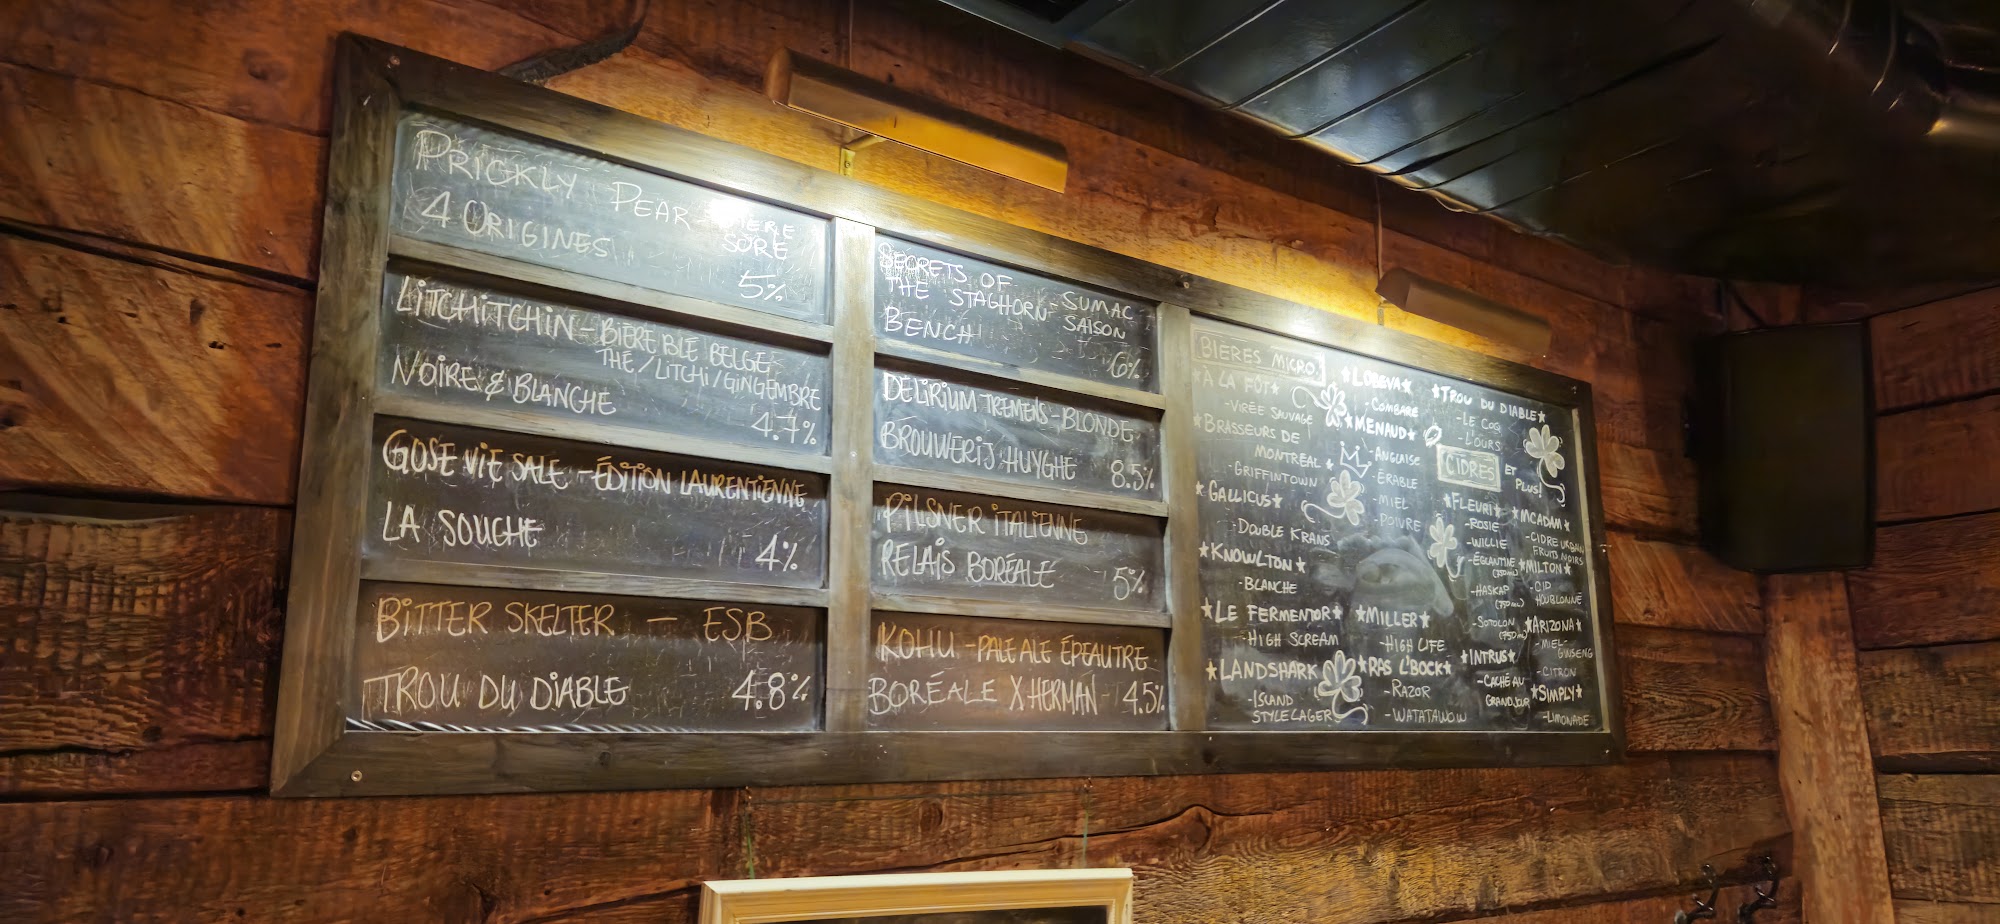 PRICKLY PEAR - BIÈRE
SÛRE
4 ORIGINES
5%
LITCHITCHIN - BIÈRE BLÉ BELGE
THÉ/LITCHI/GINGEMBRE
NOIRE & BLANCHE
4.7%
GOSE VIE SALE - ÉDITION LAURENTIENNE
LA SOUCHE
4%
BITTER SKELTER - ESB
TROU DU DIABLE 4.8%
SECRETS OF
THE STAGHORN - SUMAC
SAISON
BENCH
6%
DELIRIUM TREMENS - BLONDE
BROUWERIJ HUYGHE 8.5%
PILSNER ITALIENNE
RELAIS BORÉALE 5%
KOHU - PALE ALE ÉPEAUTRE
BORÉALE X HERMAN 4.5%
BIÈRES MICRO
★À LA FÛT★
- VIRÉE SAUVAGE
★BRASSEURS DE
MONTREAL★
- GRIFFINTOWN
★GALLICUS★
- DOUBLE KRANS
★KNOWLTON★
- BLANCHE
★LE FERMENTOR★
- HIGH SCREAM
★LANDSHARK
- ISLAND
STYLE LAGER
- COMBARE
★MENAUD★
- ANGLAISE
- ÉRABLE
- MIEL
- POIVRE
★MILLER★
- HIGH LIFE
★RAS L'BOCK★
- RAZOR
- WATATAWOW
★TROU DU DIABLE★
- LE COQ
- L'OURS
CIDRES ET
PLUS!
★FLEURI★
- ROSIE
- WILLIE
- ÉGLANTINE
- HASKAP
(750ml)
- SOTOLON
(750ml)
★INTRUS★
- CACHÉ AU
GRAND JOUR
★MCADAM★
- CIDRE URBAIN
FRUITS NOIRS
★MILTON★
- CID
HOUBLONNÉ
★ARIZONA★
- MIEL
GINSENG
- CITRON
★SIMPLY★
- LIMONADE